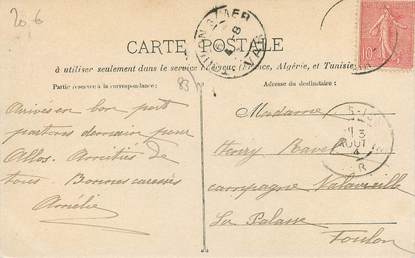 20.6
CARTE POSTALE
à utiliser seulement dans le service intérieur (France, Algérie, et Tunisie)
Partie réservée à la correspondance:
Adresse du destinataire:
83
Arrivés en bon port
partons demain pour
Allos. Amitiés de
tous. Bonnes caresses
Amélie
Madame
Henry Ravel
campagne Valavieille
La Palasse
Toulon
VAR
3
AOUT
10